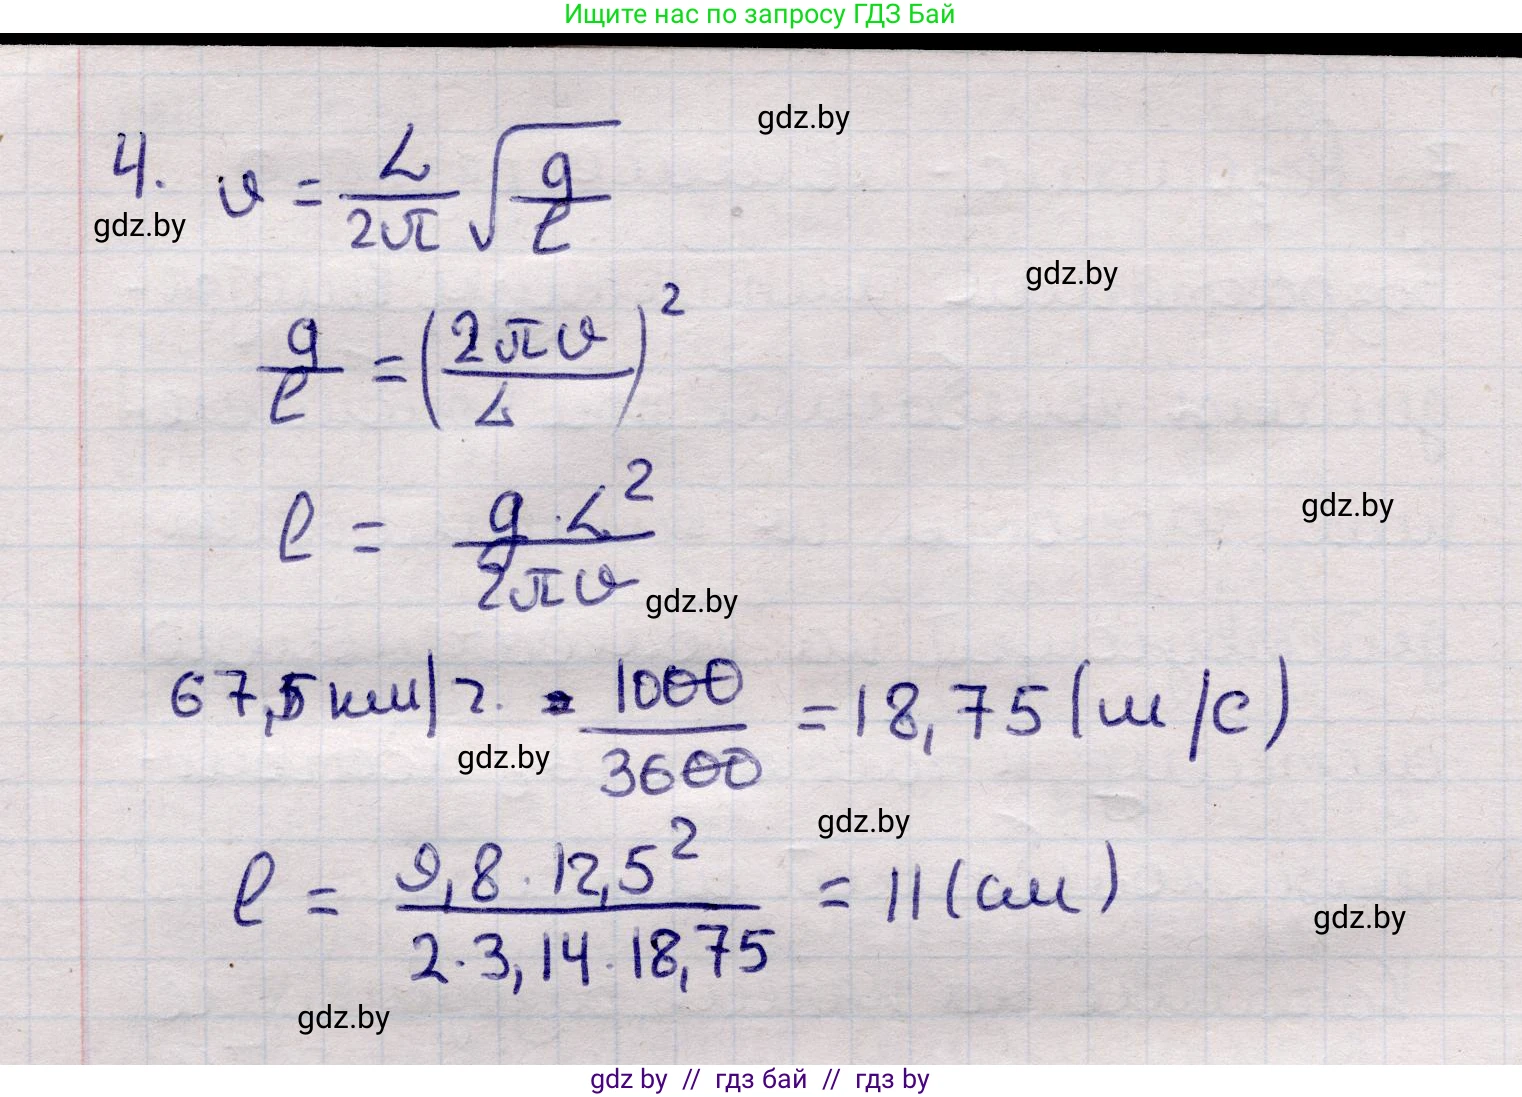 Ищите нас по запросу ГДЗ Бай
gdz.by
4. υ = L/2π √(g/l)
gdz.by
gdz.by
g/l = (2πυ/L)²
l = g·L²/2πυ
gdz.by
gdz.by
67,5 км/ч. = 1000/3600 = 18,75 (м/с)
gdz.by
gdz.by
l = 9,8·12,5²/2·3,14·18,75 = 11 (см)
gdz.by
gdz.by
gdz by // гдз бай // гдз by